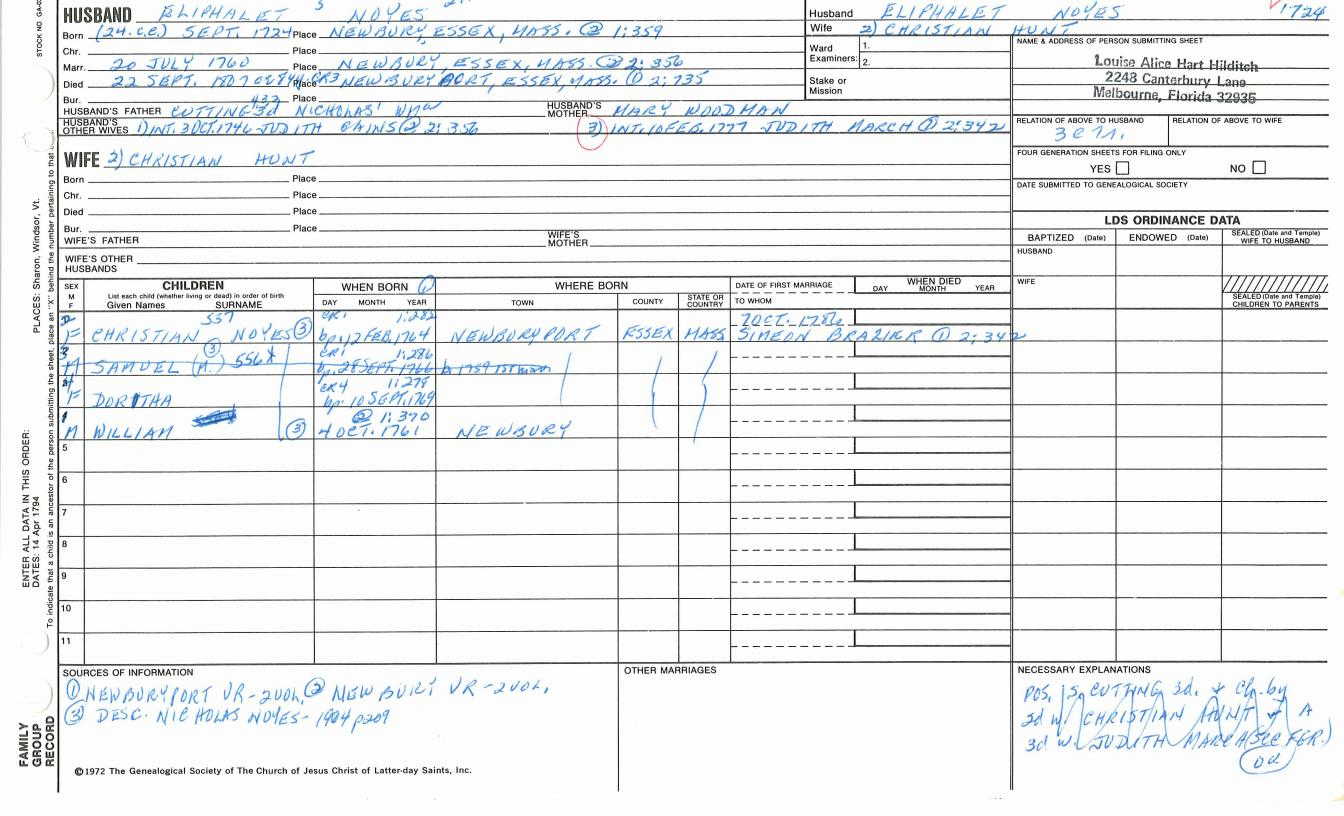 HUSBAND ELIPHALET NOYES
Born (24.C.E.) SEPT. 1724 Place NEWBURY, ESSEX, MASS. ② 1:359
Chr. Place
Marr. 20 JULY 1760 Place NEWBURY, ESSEX, MASS. ② 2:356
Died 22 SEPT. 1807 Place NEWBURYPORT, ESSEX, MASS. ① 2:735
Bur.
HUSBAND'S FATHER CUTTING 3d NICHOLAS' HUSBAND'S MOTHER MARY WOODMAN
HUSBAND'S OTHER WIVES 1) INT. 3 OCT. 1746 JUDITH ② 2:356 3) INT. 10 FEB. 1777 JUDITH MARCH ① 2:342
WIFE 2) CHRISTIAN HUNT
Born Place
Chr. Place
Died Place
Bur. Place
WIFE'S FATHER WIFE'S MOTHER
WIFE'S OTHER HUSBANDS
Husband ELIPHALET NOYES 1724
Wife 2) CHRISTIAN HUNT
Ward Examiners: 1.
2.
Stake or Mission
NAME & ADDRESS OF PERSON SUBMITTING SHEET
Louise Alice Hart Hilditch
2248 Canterbury Lane
Melbourne, Florida 32935
RELATION OF ABOVE TO HUSBAND RELATION OF ABOVE TO WIFE
FOUR GENERATION SHEETS FOR FILING ONLY
YES NO
DATE SUBMITTED TO GENEALOGICAL SOCIETY
LDS ORDINANCE DATA
BAPTIZED (Date) ENDOWED (Date) SEALED (Date and Temple) WIFE TO HUSBAND
HUSBAND
WIFE
SEALED (Date and Temple) CHILDREN TO PARENTS
SEX M F
CHILDREN
List each child (whether living or dead) in order of birth
Given Names SURNAME
WHEN BORN ①
DAY MONTH YEAR
WHERE BORN
TOWN COUNTY STATE OR COUNTRY
DATE OF FIRST MARRIAGE
TO WHOM
WHEN DIED
DAY MONTH YEAR
2 557 CR1 1:282 7 OCT. 1786
F CHRISTIAN NOYES ③ bp. 12 FEB. 1764 NEWBURYPORT ESSEX MASS SIMEON BRAZIER ① 2:342
3 ③ CR1 1:286
M SAMUEL (M.) 556X bp. 28 SEPT. 1766
4 CR4 1:279
F DORITHA bp. 10 SEPT. 1769
1 ② 1:370
M WILLIAM ③ 4 OCT. 1761 NEWBURY
5
6
7
8
9
10
11
SOURCES OF INFORMATION
① NEWBURYPORT VR - 2 VOL. ② NEWBURY VR - 2 VOL.
③ DESC. NICHOLAS NOYES - 1904 p209
OTHER MARRIAGES
NECESSARY EXPLANATIONS
POS. IS CUTTING 3d. + ch. by
2d w. CHRISTIAN HUNT + A
3d w. JUDITH (SEE FGR.)
©1972 The Genealogical Society of The Church of Jesus Christ of Latter-day Saints, Inc.
STOCK NO
PLACES: Sharon, Windsor, Vt.
ENTER ALL DATA IN THIS ORDER:
DATES: 14 Apr 1794
To indicate that a child is an ancestor of the person submitting the sheet, place an "X" behind the number pertaining to that
FAMILY
GROUP
RECORD